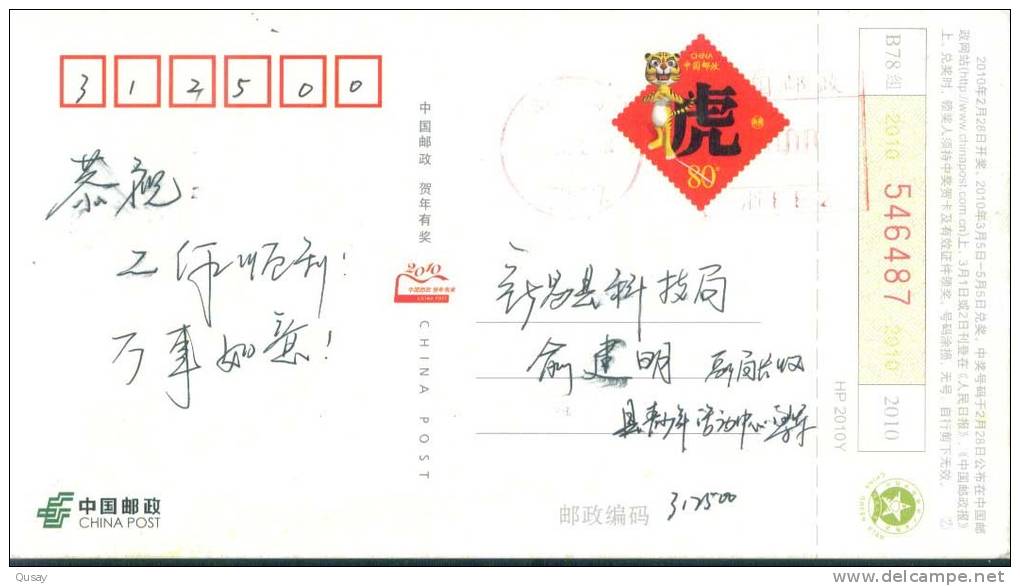 312500
CHINA
中国邮政
虎
80
恭祝：
工作顺利！
万事如意！
中国邮政 贺年有奖
2010
中国邮政 贺年有奖
CHINA POST
CHINA POST
新昌县科技局
俞建明 副局长收
县青少年活动中心
邮政编码 312500
中国邮政
CHINA POST
HP 2010Y
B78组
2010 546487 2010
2010
2010年2月28日开奖，2010年3月5日-5月5日兑奖。中奖号码于2月28日公布在中国邮
政网站(http://www.chinapost.com.cn)上，3月1日或2日刊登在《人民日报》、《中国邮政报》
上。兑奖时，领奖人须持中奖贺卡及有效证件领奖。号码涂损、无号、自行剪下无效。
Qusay
www.delcampe.net